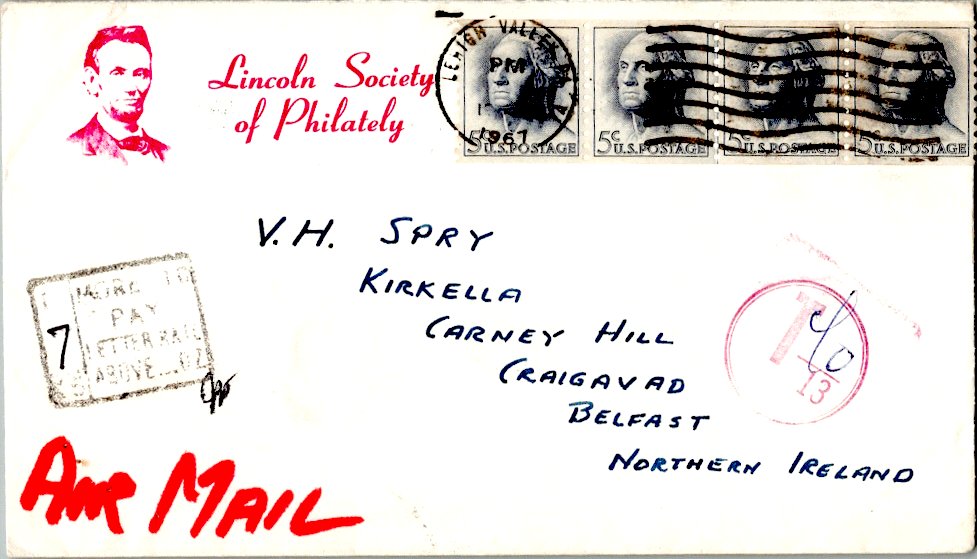 Lincoln Society
of Philately
LEHIGH VALLEY
PM
1967
5c U.S. POSTAGE
5c U.S. POSTAGE
5c U.S. POSTAGE
5c U.S. POSTAGE
V.H. SPRY
KIRKELLA
CARNEY HILL
CRAIGAVAD
BELFAST
NORTHERN IRELAND
7
MORE TO
PAY
LETTER RATE
ABOVE OZ
T
40
13
AIR MAIL